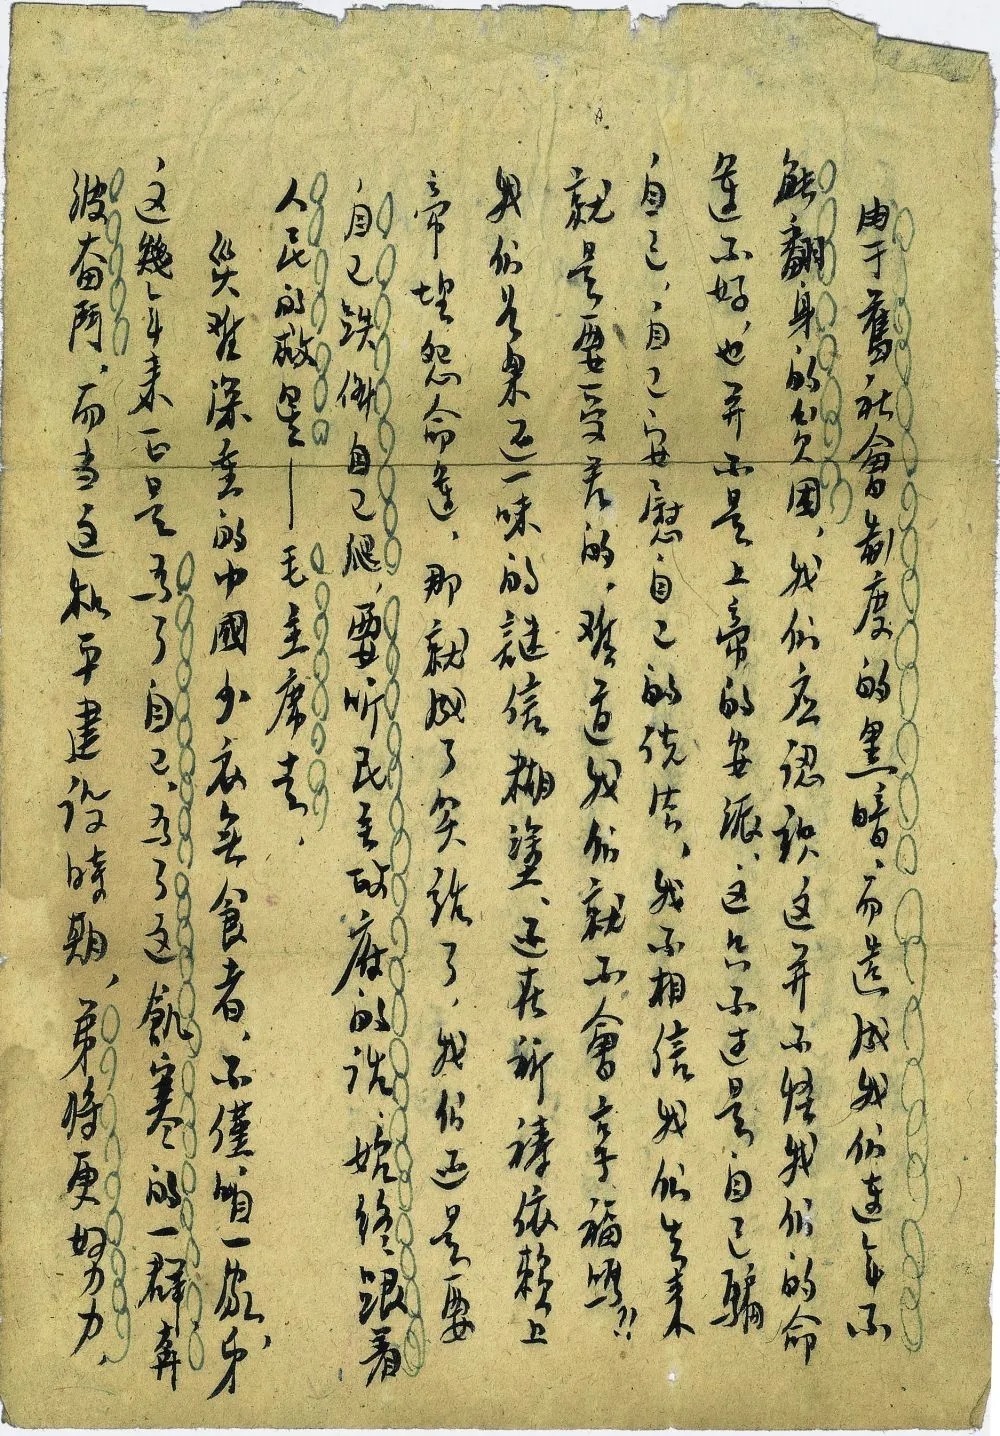 由于舊社會制度的黑暗，而造成我们連年不
能翻身的貧困，我们应認識这并不怪我们的命
運不好，也并不是上帝的安派，这只不过是自己騙
自己，自己安慰自己的说法，我不相信我们生来
就是要受苦的，难道我们就不會享福嗎？！
我们若果还一味的謎信糊塗，还在祈禱依赖上
帝埋怨命運，那就成了笑話了，我们还是要
自己跌倒自己爬，要听民主政府的話，始终跟着
人民的救星——毛主席走，
災难深重的中國少衣無食者，不僅咱一家，弟
这幾年来正是為了自己，為了这飢寒的一群，奔
波奋鬥，而当这和平建设時期，弟将更努力，